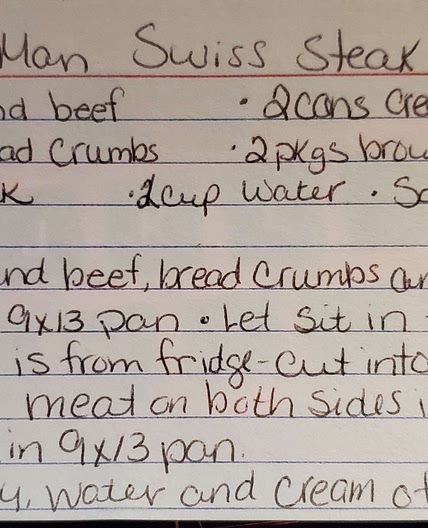 Man Swiss Steak
nd beef • 2cans Cre
ad Crumbs • 2pkgs brow
k • 1cup water • Sa
nd beef, bread Crumbs an
9x13 pan • Let Sit in
is from fridge-cut into
meat on both sides i
in 9x13 pan.
y, water and Cream of